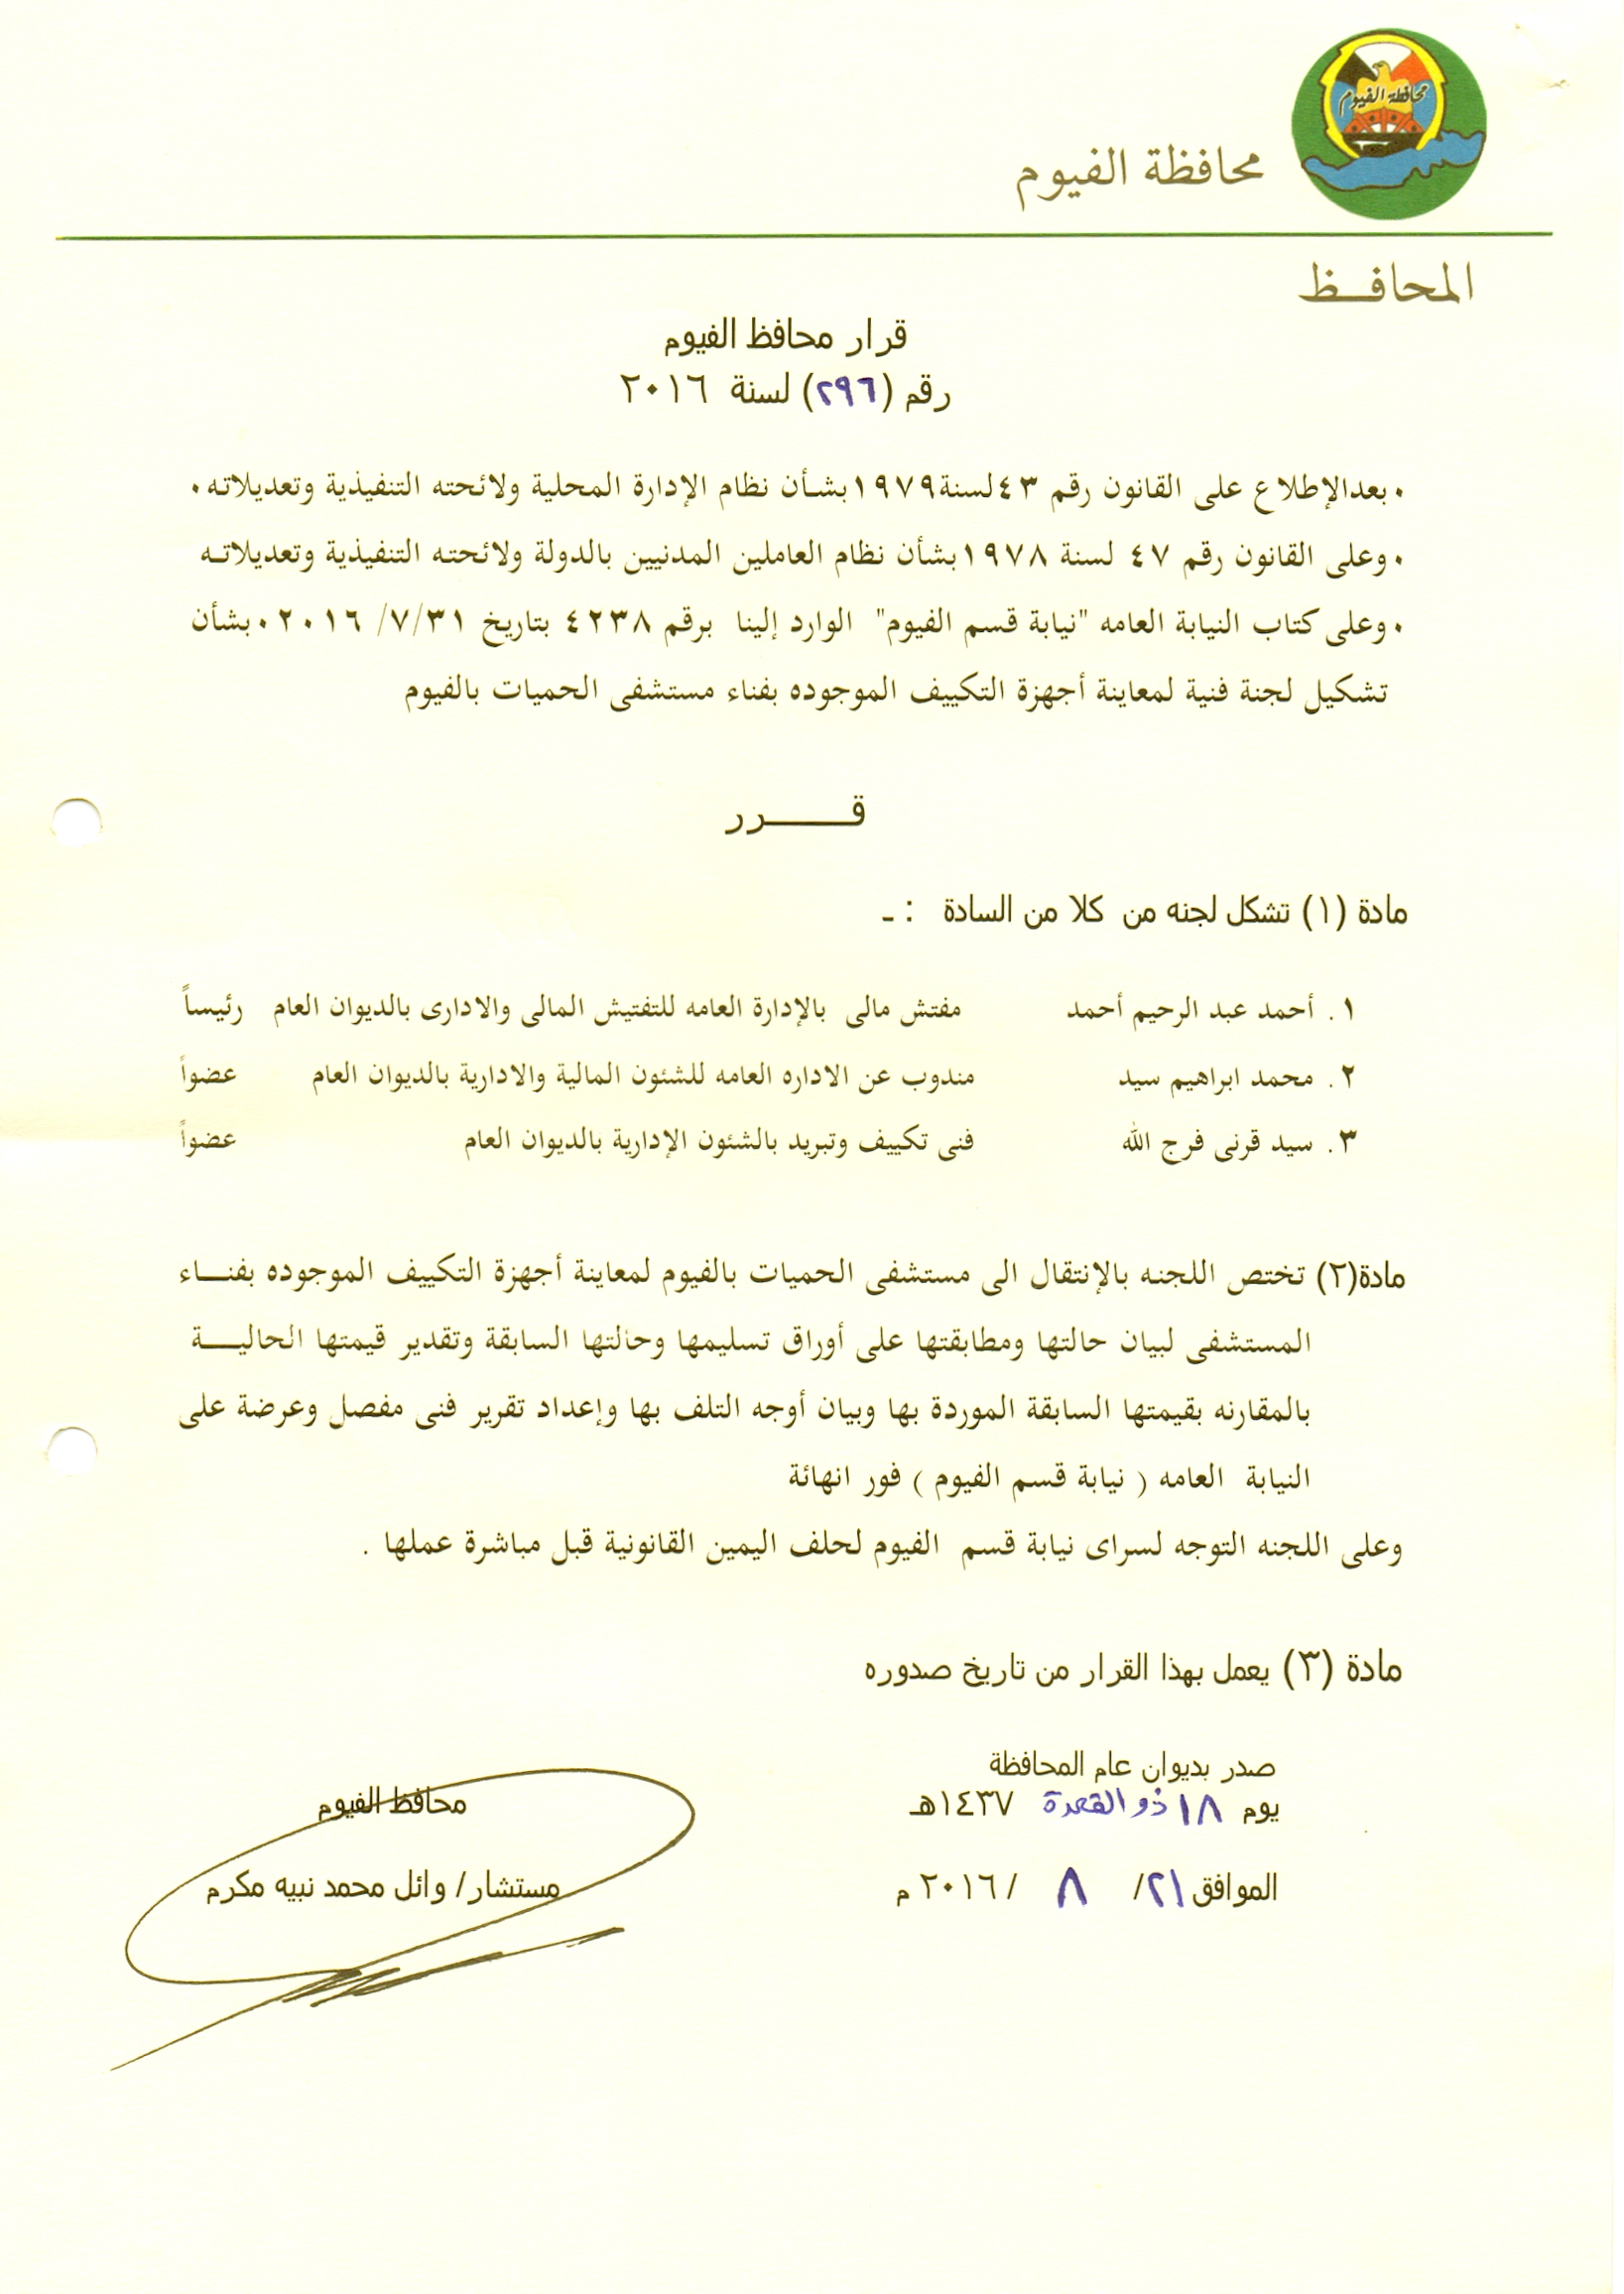 محافظة الفيوم
محافظة الفيوم
المحافــظ
قرار محافظ الفيوم
رقم (٢٩٦) لسنة ٢٠١٦
• بعدالإطلاع على القانون رقم ٤٣لسنة١٩٧٩بشأن نظام الإدارة المحلية ولائحته التنفيذية وتعديلاته٠
• وعلى القانون رقم ٤٧ لسنة ١٩٧٨بشأن نظام العاملين المدنيين بالدولة ولائحته التنفيذية وتعديلاته
• وعلى كتاب النيابة العامه "نيابة قسم الفيوم" الوارد إلينا برقم ٤٢٣٨ بتاريخ ٧/٣١/ ٢٠١٦٠بشأن
تشكيل لجنة فنية لمعاينة أجهزة التكييف الموجوده بفناء مستشفى الحميات بالفيوم
قـــــرر
مادة (١) تشكل لجنه من كلا من السادة : ـ
١. أحمد عبد الرحيم أحمد مفتش مالى بالإدارة العامه للتفتيش المالى والادارى بالديوان العام رئيساً
٢. محمد ابراهيم سيد مندوب عن الاداره العامه للشئون المالية والادارية بالديوان العام عضواً
٣. سيد قرنى فرج الله فنى تكييف وتبريد بالشئون الإدارية بالديوان العام عضواً
مادة(٢) تختص اللجنه بالإنتقال الى مستشفى الحميات بالفيوم لمعاينة أجهزة التكييف الموجوده بفنـــاء
المستشفى لبيان حالتها ومطابقتها على أوراق تسليمها وحالتها السابقة وتقدير قيمتها الحاليـــة
بالمقارنه بقيمتها السابقة الموردة بها وبيان أوجه التلف بها وإعداد تقرير فنى مفصل وعرضة على
النيابة العامه ( نيابة قسم الفيوم ) فور انهائة
وعلى اللجنه التوجه لسراى نيابة قسم الفيوم لحلف اليمين القانونية قبل مباشرة عملها .
مادة (٣) يعمل بهذا القرار من تاريخ صدوره
صدر بديوان عام المحافظة
يوم ١٨ ذو القعدة ١٤٣٧هـ
الموافق ٢١/ ٨ / ٢٠١٦ م
محافظ الفيوم
مستشار/ وائل محمد نبيه مكرم